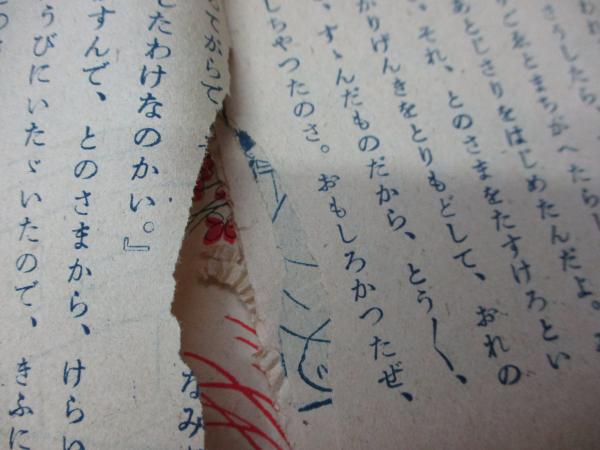 われ
さうしたら、
りごゑとまちがへたらし
あとじさりをはじめたんだよ。
、それ、とのさまをたすけろとい
かりげんきをとりもどして、おれの
、すゝんだものだから、とう〳〵、
しちやつたのさ。おもしろかつたぜ、
つてがらて
したわけなのかい。』
すんで、とのさまから、けらい
うびにいたゞいたので、きふに
なみ